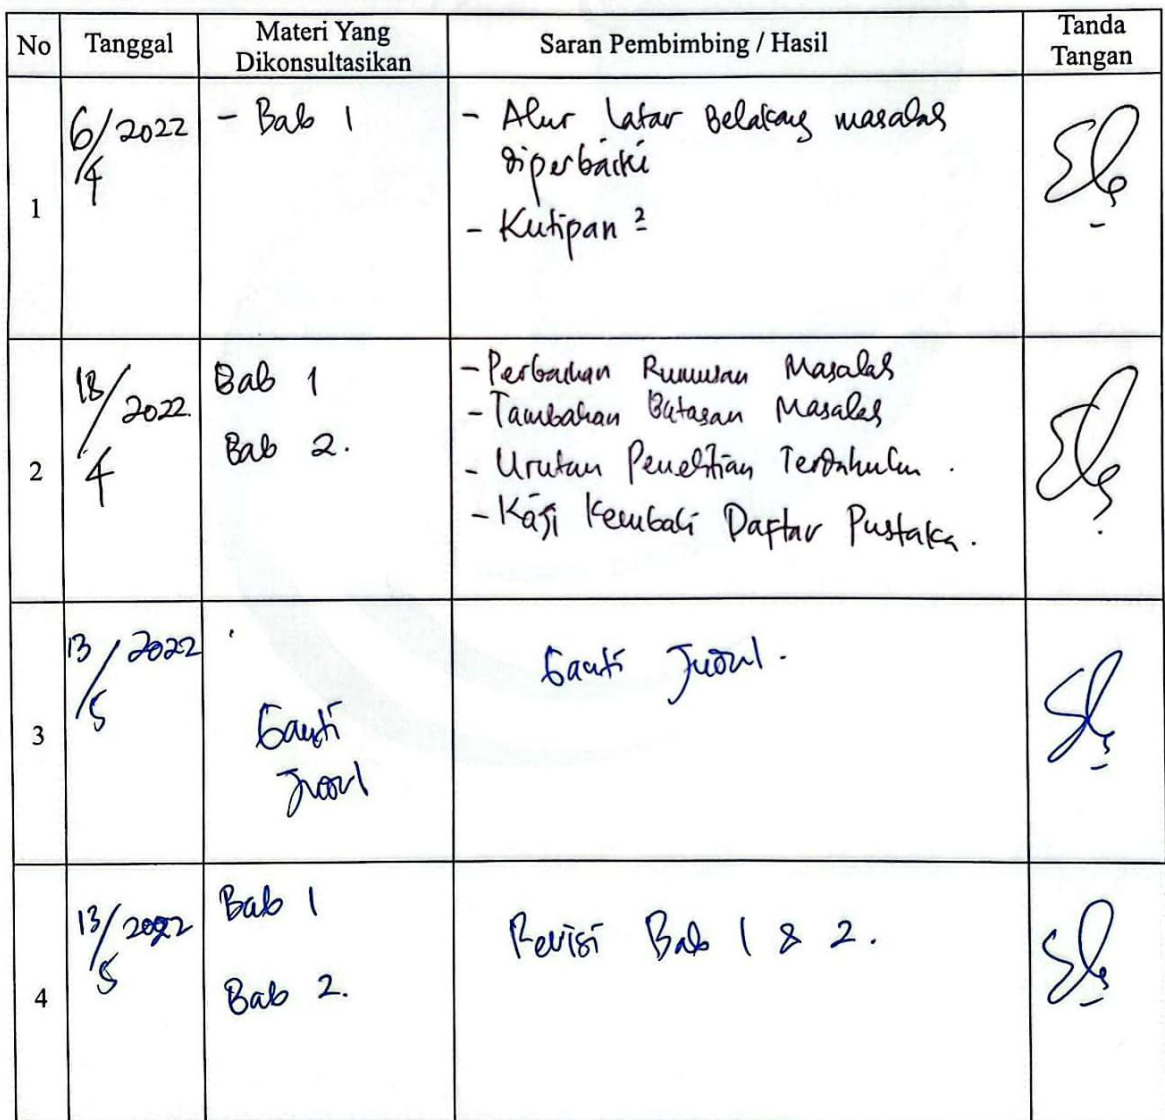 No Tanggal Materi Yang Dikonsultasikan Saran Pembimbing / Hasil Tanda Tangan
1
6/4 2022
- Bab 1
- Alur Latar Belakang masalah
diperbaiki
- Kutipan ²
2
18/4 2022.
Bab 1
Bab 2.
- Perbaikan Rumusan Masalah
- Tambahan Batasan Masalah
- Urutan Penelitian Terdahulu .
- Kaji Kembali Daftar Pustaka.
3
13/5 2022
Ganti
Judul
Ganti Judul.
4
13/5 2022
Bab 1
Bab 2.
Revisi Bab 1 & 2.